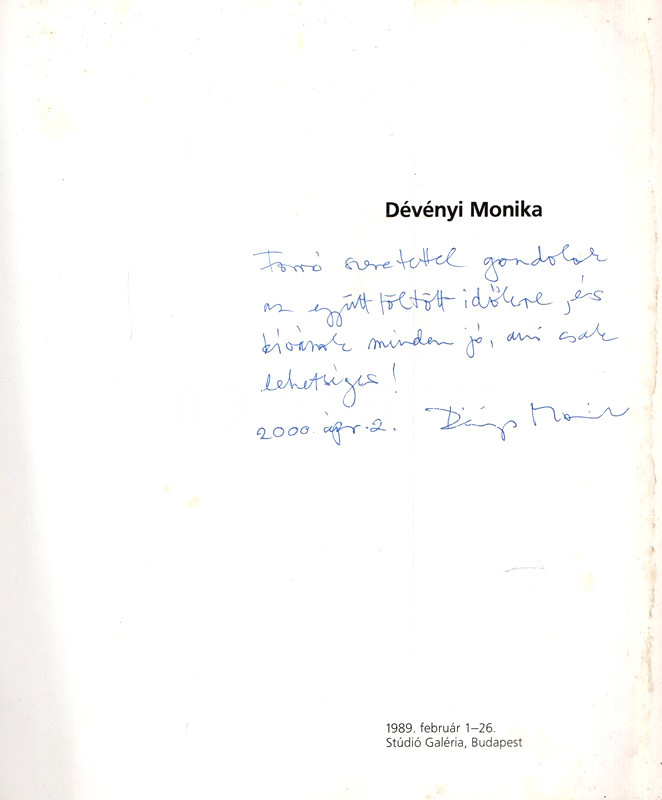 Dévényi Monika
Forró szeretettel gondolok
az együtt töltött időkre, és
kívánok minden jó, ami csak
lehetséges!
2000. ápr. 2. Dévényi Monika
1989. február 1–26.
Stúdió Galéria, Budapest